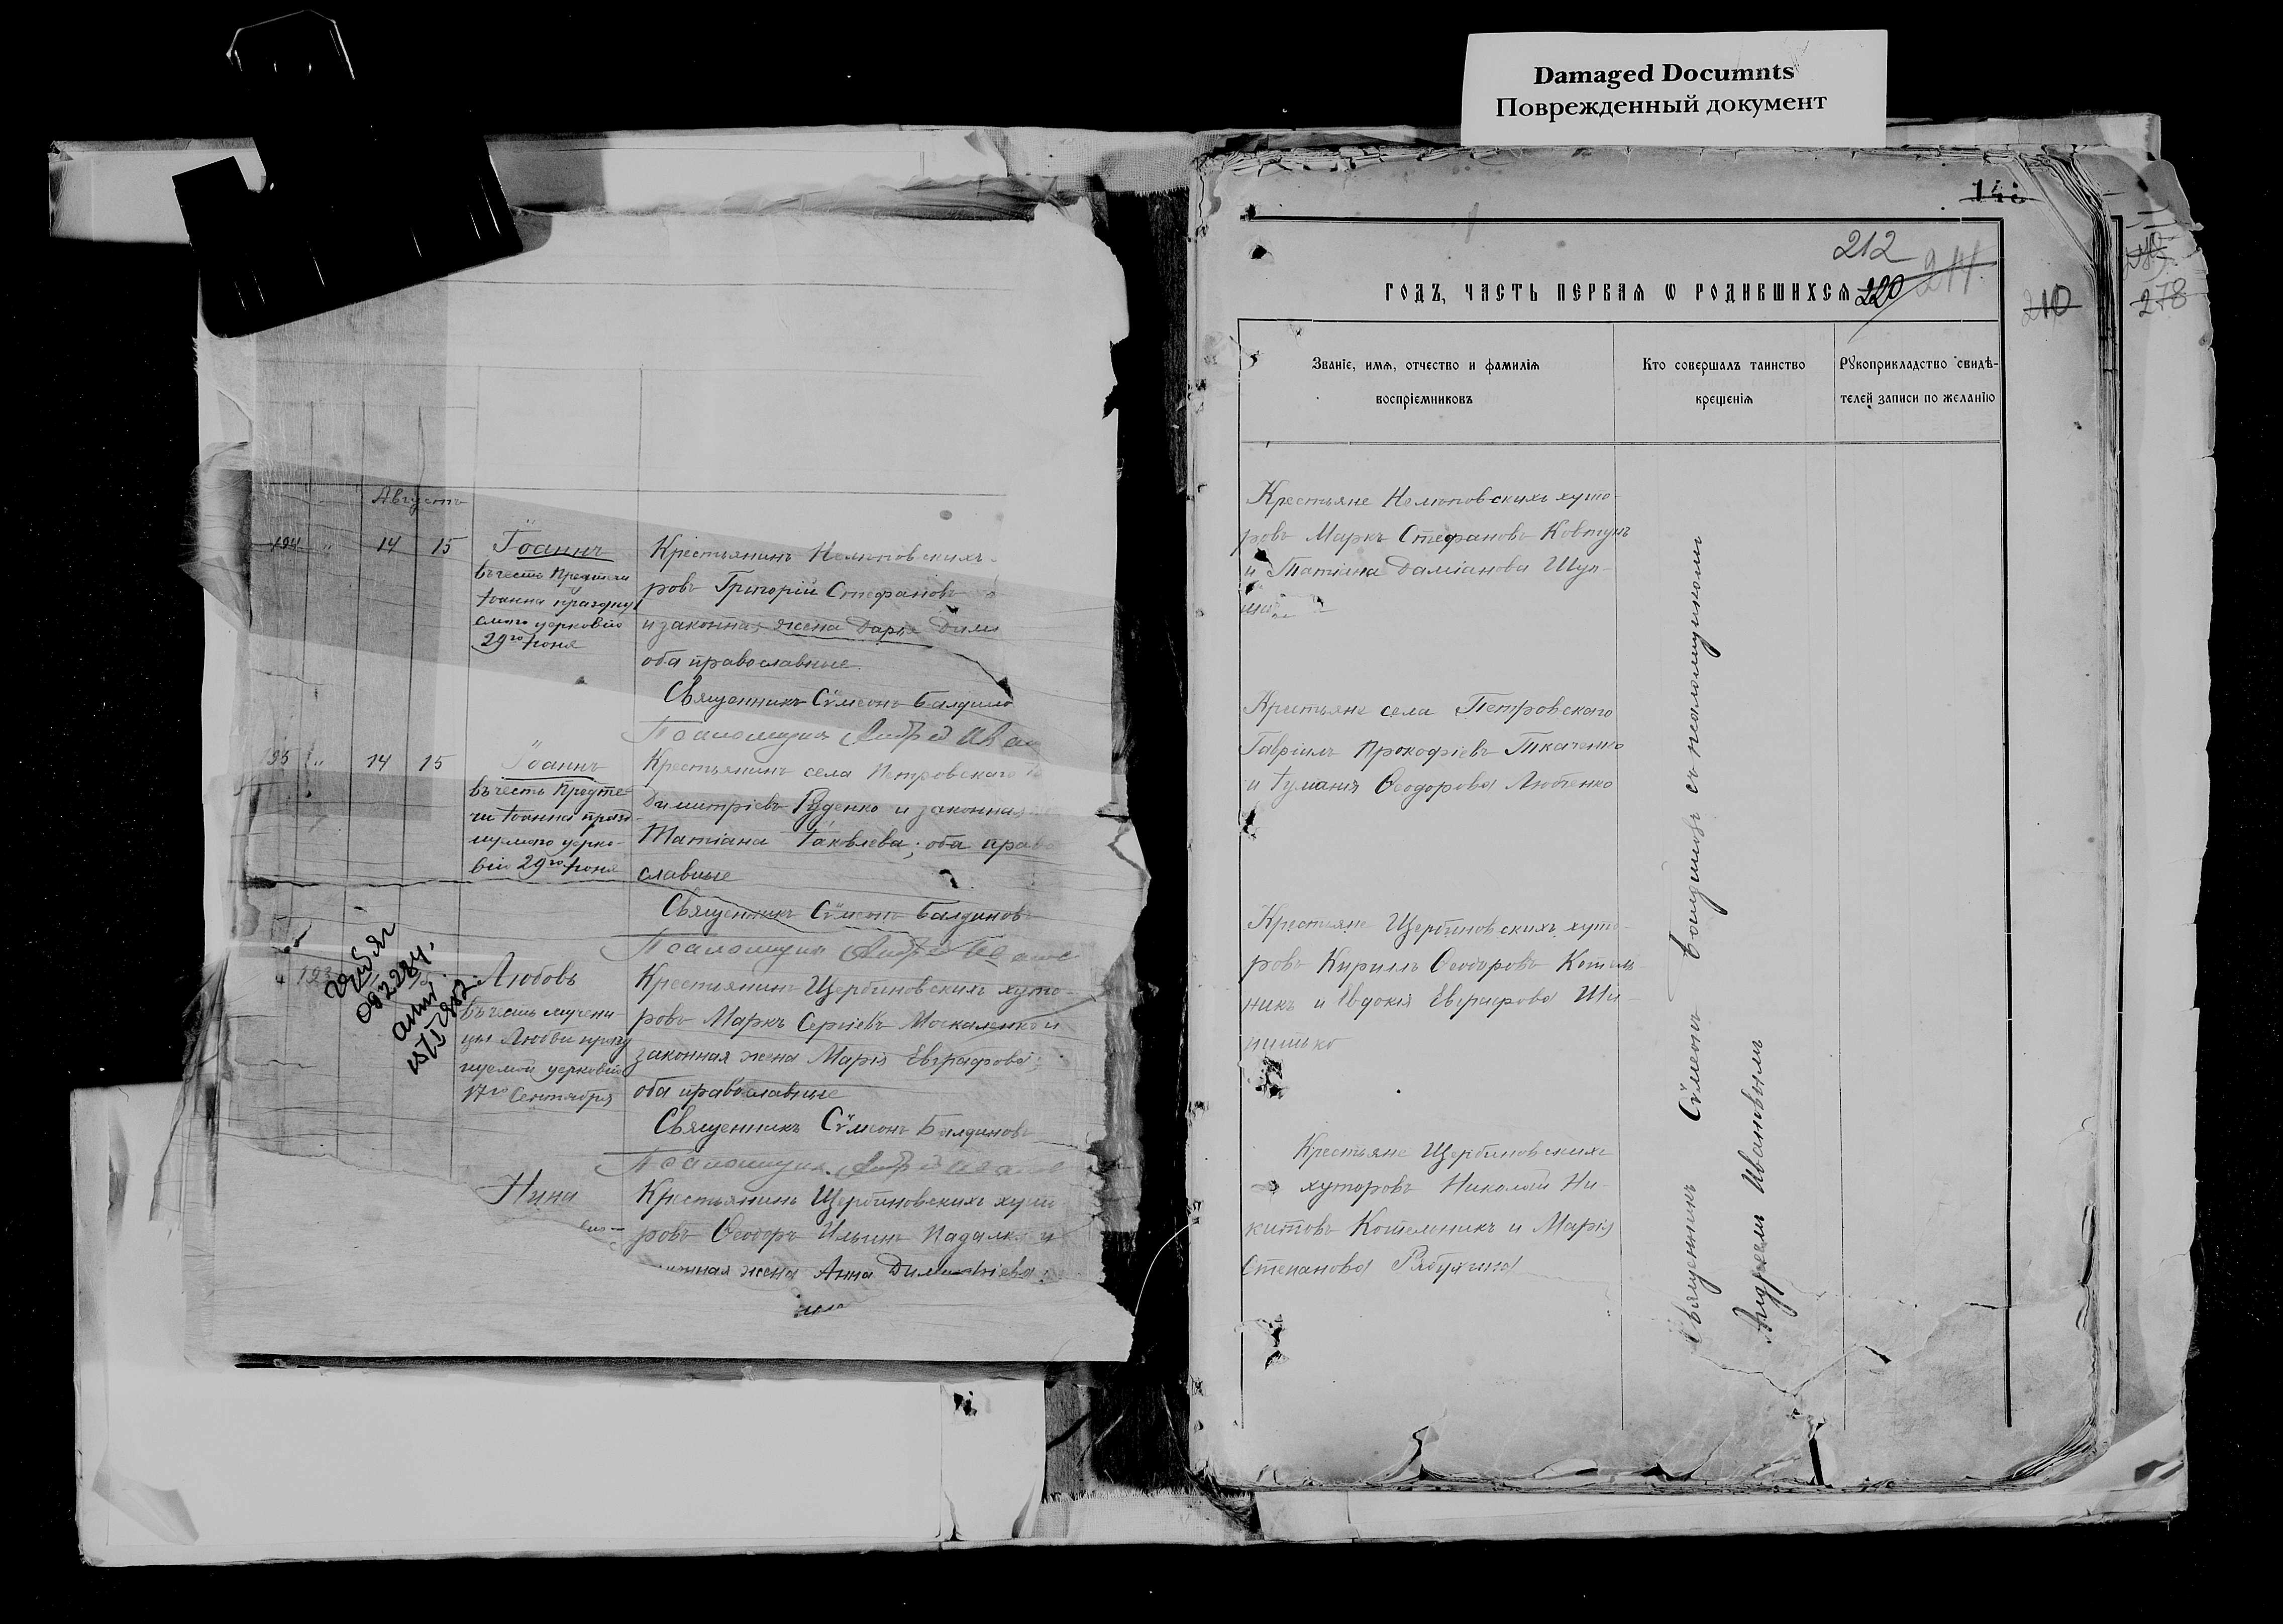 Damaged Documnts
Поврежденный документ
Августъ
194 " 14 15
Іоаннъ
въ честь Предтечи
Іоанна праздну
емаго церковію
29го Іюня
Крестьянинъ
ровъ Григорій Стефановъ
и законная жена Дарья
оба православные.
Священникъ Сѵмеонъ
Псаломщикъ Андрей
195 " 14 15
Іоаннъ
въ честь Предте-
чи Іоанна празд
нуемаго церко-
вію 29го Іюня
Крестьянинъ села Петровскаго
Димитріевъ Руденко и законная
Татіана Іаковлева; оба право
славные
Священникъ Сѵмеонъ Балдиновъ
Псаломщикъ Андрей
Любовь
въ честь мучени-
цы Любви празд
нуемой церковію
17го Сентября
Крестьянинъ Щербиновскихъ хуто-
ровъ Маркъ Сергіевъ Москаленко и
законная жена Марія Евграфова;
оба православные
Священникъ Сѵмеонъ Балдиновъ
Псаломщикъ Андрей
Нина
Крестьянинъ Щербиновскихъ хуто
ровъ Ѳеодоръ Ильинъ Падалка и
жена Анна Димитріева;
212
220
211
210
278
ГОДЪ, ЧАСТЬ ПЕРВАЯ Ѡ РОДИВШИХСЯ
Званіе, имя, отчество и фамилія
воспріємниковъ
Кто совершалъ таинство
крещенія
Рукоприкладство свидѣ-
телей записи по желанію
Крестьяне хуто-
ровъ Маркъ Стефановъ Ковтунъ
и Татіана Даміанова
Крестьяне села Петровскаго
Гавріилъ Прокофіевъ Ткаченко
и Ѳеодорова
Крестьяне Щербиновскихъ хуто-
ровъ Кириллъ Ѳеодоровъ Котель-
никъ и Евдокія Евграфова
Крестьяне Щербиновскихъ
хуторовъ Николай Ни-
китовъ Котельникъ и Марія
Степанова
Священникъ Сѵмеонъ Балдиновъ съ псаломщикомъ
Андреемъ Ивановымъ